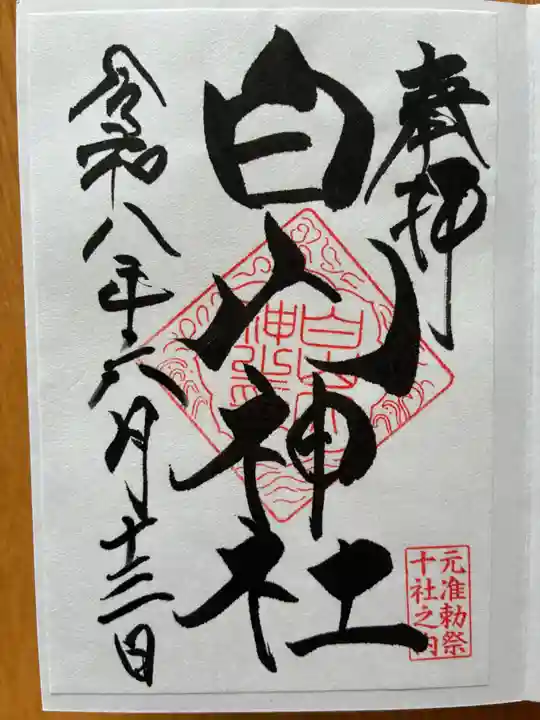 奉拝
白山神社
令和八年六月十三日
白山神社
元准勅祭
十社之内